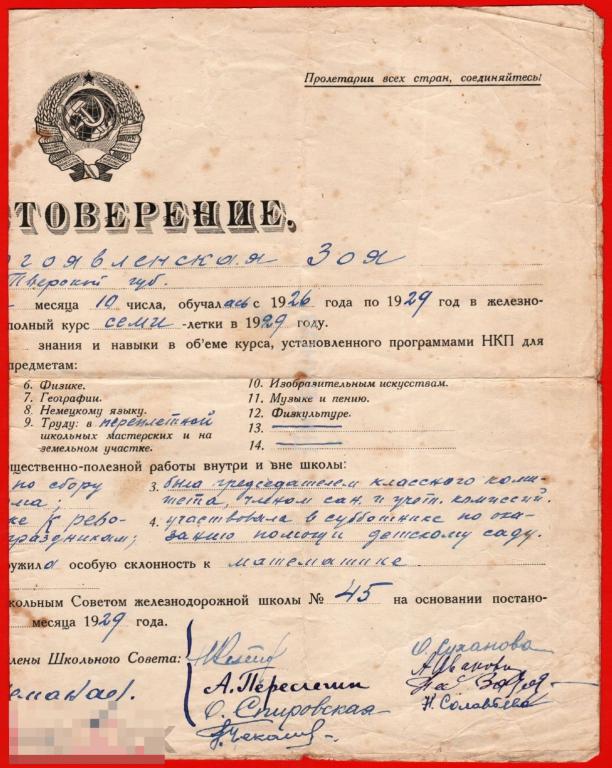 Пролетарии всех стран, соединяйтесь!
СТОВЕРЕНИЕ.
гоявленская Зоя
Тверской губ.
месяца 10 числа, обучалась с 1926 года по 1929 год в железно-
полный курс семи -летки в 1929 году.
знания и навыки в об'еме курса, установленного программами НКП для
предметам:
6. Физике.
7. Географии.
8. Немецкому языку.
9. Труду: в переплетной
школьных мастерских и на
земельном участке.
10. Изобразительным искусствам.
11. Музыке и пению.
12. Физкультуре.
13.
14.
щественно-полезной работы внутри и вне школы:
по сбору
ма;
ке к рево-
раздникам;
3. была председателем классного коми-
тета, членом сан. и учет. комиссий.
4. участвовала в субботнике по ока-
занию помощи детскому саду.
ружила особую склонность к математике
кольным Советом железнодорожной школы № 45 на основании постано-
месяца 1929 года.
лены Школьного Совета:
А. Переслегин
О. Спировская
О. Суханова
Н. Соловьева